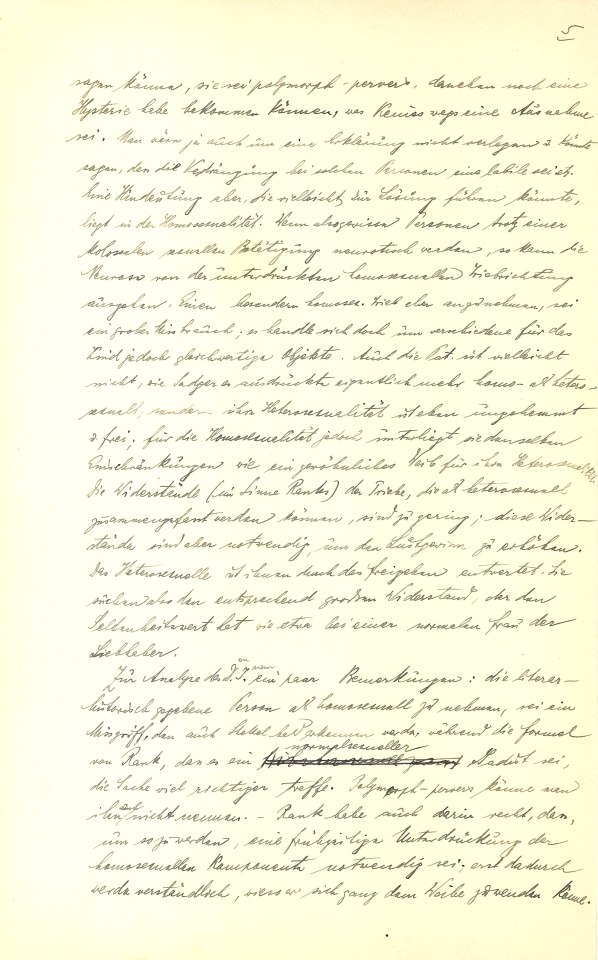 5
sagen könne, sie sei polymorph-pervers, daneben noch eine
Hysterie habe bekommen können, was keineswegs eine Ausnahme
sei. Man wäre ja auch um eine Erklärung nicht verlegen u könnte
sagen, dass die Verdrängung bei solchen Personen eine labile sei etz.
Eine Hindeutung aber, die vielleicht zur Lösung führen könnte,
liegt in der Homosexualität. Wenn also gewisse Personen trotz einer
kolossalen sexuellen Betätigung neurotisch werden, so kann die
Neurose von der unterdrückten homosexuellen Triebrichtung
ausgehen. Einen besondern homosex. Trieb aber anzunehmen, sei
ein grober Missbrauch; es handle sich doch um verschiedene für das
Kind jedoch gleichwertige Objekte. Auch die Pat. ist vielleicht
nicht, wie Sadger es ausdrückte eigentlich mehr homo- als hetero-
sexuell, sondern ihre Heterosexualität ist eben ungehemmt
u frei; für die Homosexualität jedoch unterliegt sie denselben
Einschränkungen wie ein gewöhnliches Weib für ihre Heterosexualität.
Die Widerstände (im Sinne Ranks) der Triebe, die als heterosexuell
zusammengefasst werden können, sind zu gering; diese Wider-
stände sind aber notwendig, um den Lustgewinn zu erhöhen.
Das Heterosexuelle ist ihnen durch das freigeben entwertet. Sie
suchen also den entsprechend grossen Widerstand, der den
Seltenheitswert hat wie etwa bei einer normalen Frau der
Liebhaber.
Zur Analyse des D. J. ein paar Bemerkungen: die literar-
historisch gegebene Person als homosexuell zu nehmen, sei ein
Missgriff, den auch Stekel bald erkennen werde, während die Formel
von Rank, dass es ein normalsexueller Sadist sei,
die Sache viel richtiger treffe. Polymorph-pervers könne man
ihn auch nicht nennen. – Rank habe auch darin recht, dass,
um so zu werden, eine frühzeitige Unterdrückung der
homosexuellen Komponente notwendig sei; erst dadurch
werde verständlich, wieso er sich ganz dem Weibe zuwenden könne.